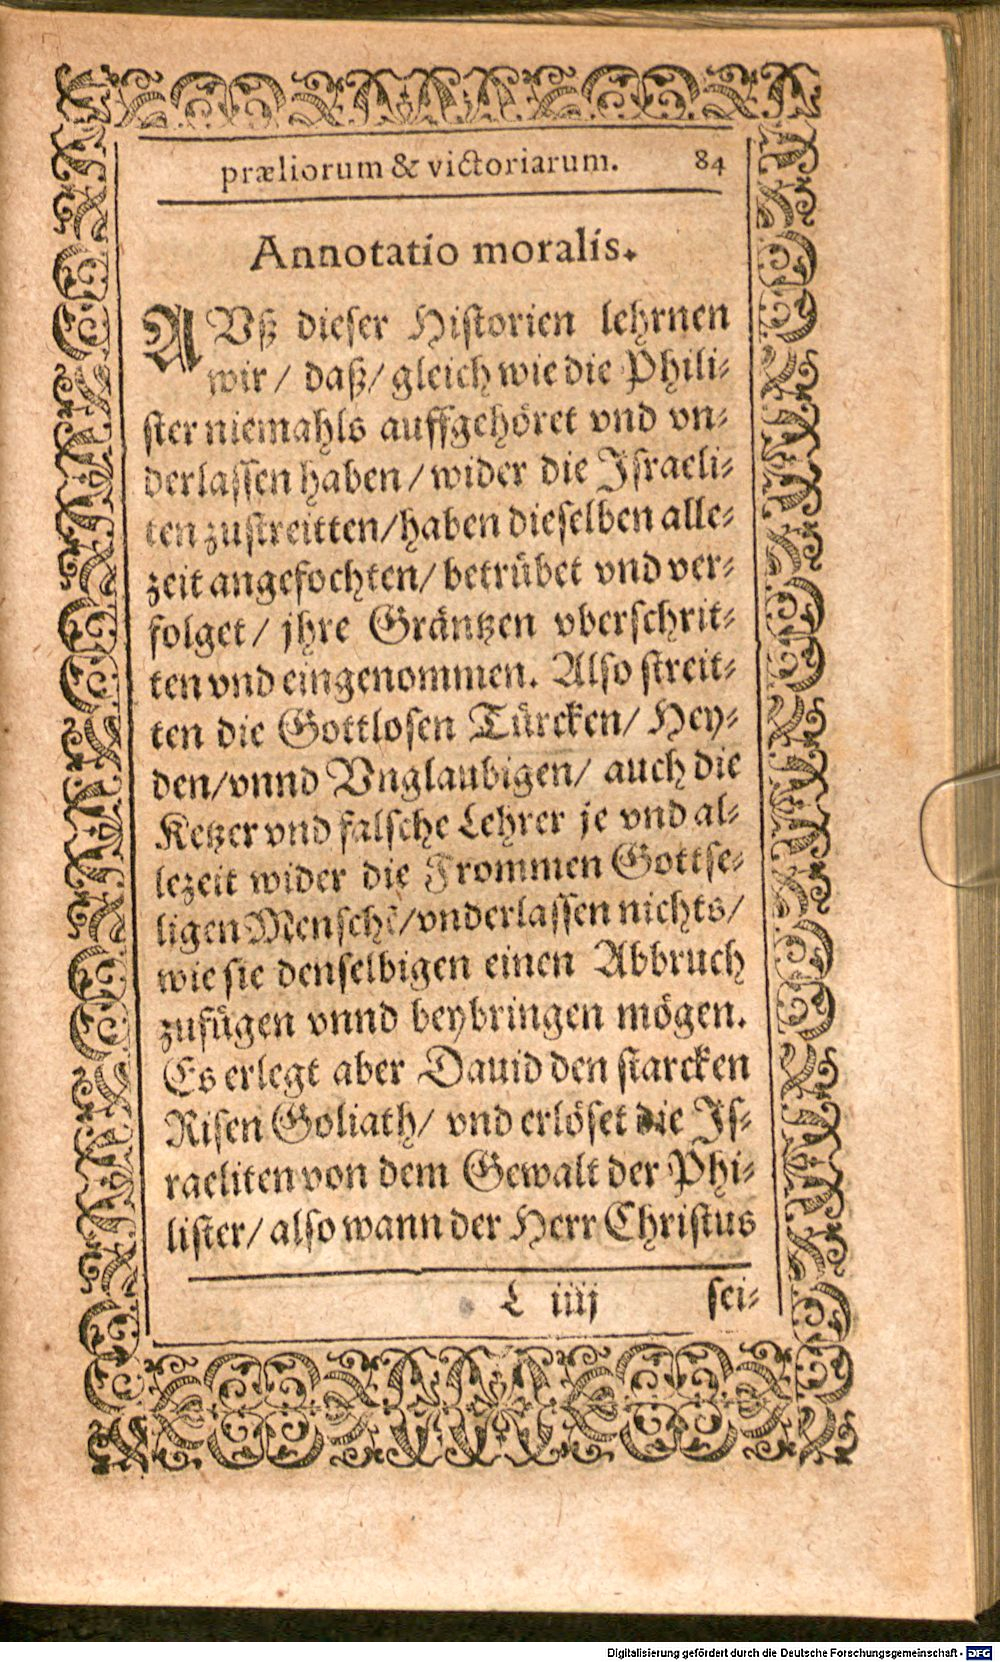 præliorum & victoriarum. 84
Annotatio moralis.
AVß dieser Historien lehrnen
wir / daß / gleich wie die Phili-
ster niemahls auffgehöret vnd vn-
derlassen haben / wider die Israeli-
ten zustreitten / haben dieselben alle-
zeit angefochten / betrübet vnd ver-
folget / jhre Gräntzen vberschrit-
ten vnd eingenommen. Also streit-
ten die Gottlosen Türcken / Hey-
den / vnnd Vnglaubigen / auch die
Ketzer vnd falsche Lehrer je vnd al-
lezeit wider die Frommen Gottse-
ligen Menschẽ / vnderlassen nichts /
wie sie denselbigen einen Abbruch
zufügen vnnd beybringen mögen.
Es erlegt aber Dauid den starcken
Risen Goliath / vnd erlöset die Is-
raeliten von dem Gewalt der Phi-
lister / also wann der Herr Christus
L iiij sei-
Digitalisierung gefördert durch die Deutsche Forschungsgemeinschaft - DFG